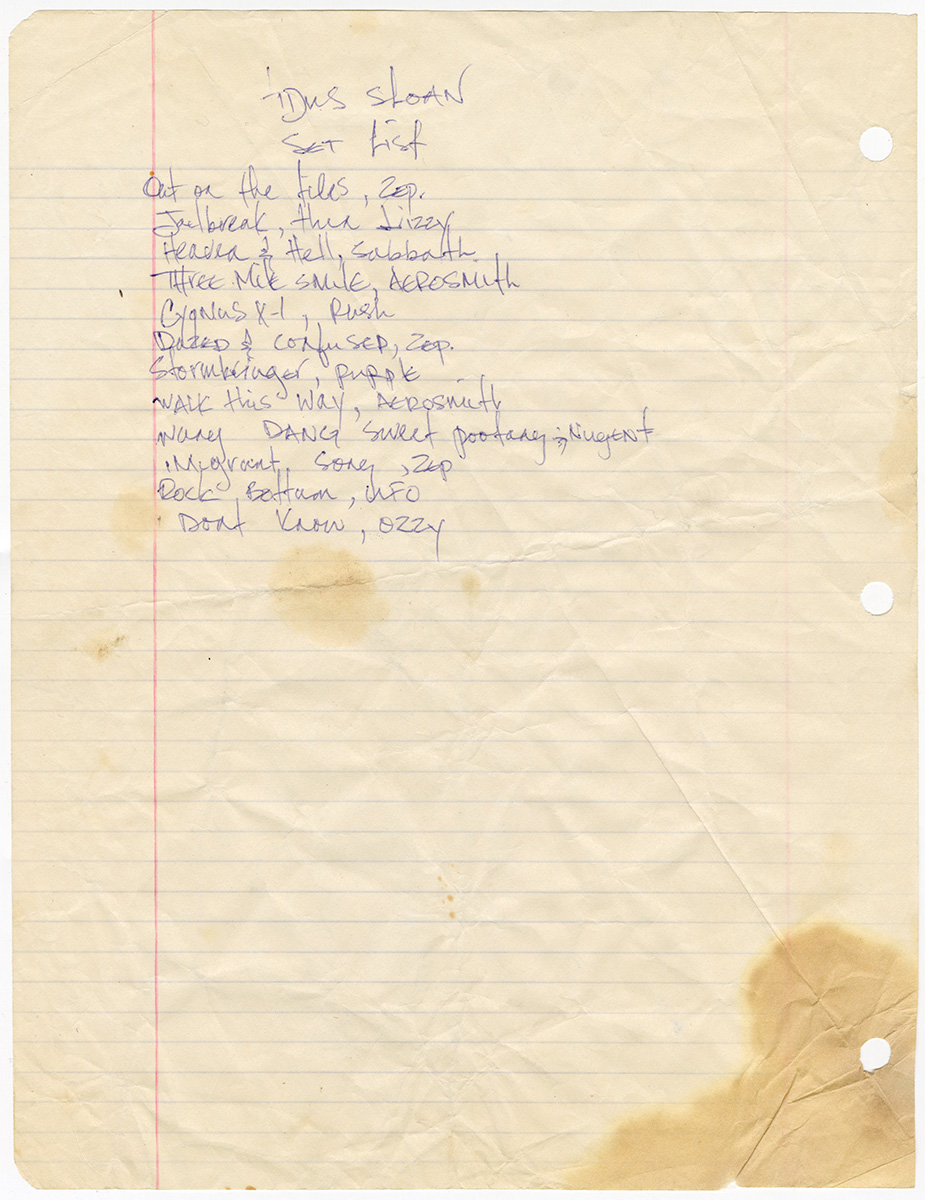 IDUS SLOAN
SET List
Out on the tiles, Zep.
Jailbreak, thin Lizzy
Heaven & Hell, Sabbath.
THree Mile SMILE, AEROSMITH
CYgNUS X-1, Rush
DAZED & CONfUSED, Zep.
Stormbringer, PURPLE
WALK this Way, AEROSMITH
Wang DANG Sweet Pootang, NugENT
iMigrant Song, Zep
Rock Bottum, UFO
Dont Know, OZZY